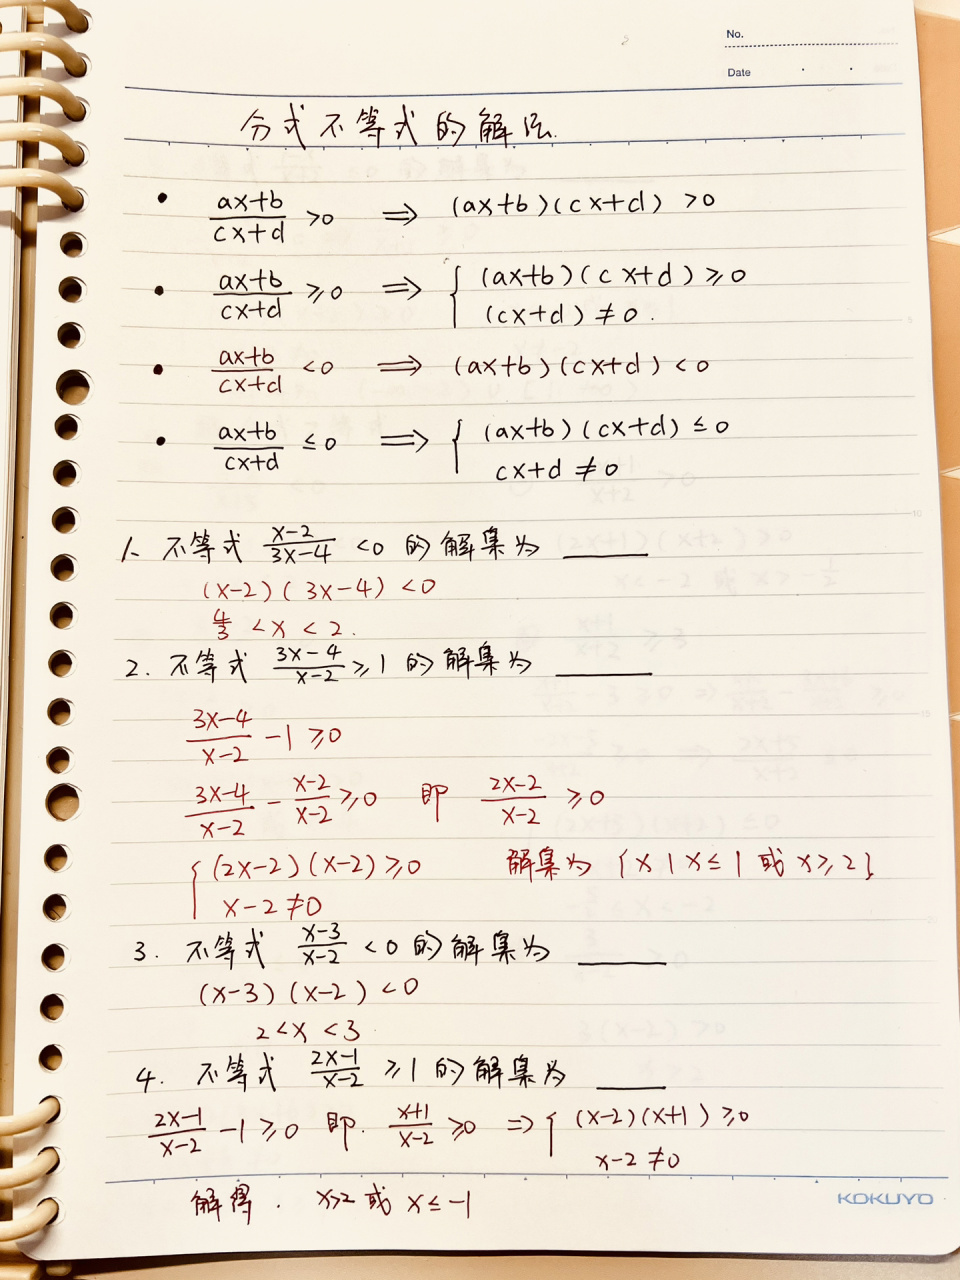 No.
Date
分式不等式的解法.
• (ax+b)/(cx+d) >0 ⟹ (ax+b)(cx+d) >0
• (ax+b)/(cx+d) ≥0 ⟹ { (ax+b)(cx+d) ≥0
(cx+d) ≠0.
• (ax+b)/(cx+d) <0 ⟹ (ax+b)(cx+d) <0
• (ax+b)/(cx+d) ≤0 ⟹ { (ax+b)(cx+d) ≤0
cx+d ≠0
1、不等式 (x-2)/(3x-4) <0 的解集为 ____
(x-2)(3x-4) <0
4/3 <x< 2.
2. 不等式 (3x-4)/(x-2) ≥1 的解集为 ____
(3x-4)/(x-2) -1 ≥0
(3x-4)/(x-2) - (x-2)/(x-2) ≥0 即 (2x-2)/(x-2) ≥0
{ (2x-2)(x-2) ≥0 解集为 {x|x≤1 或 x≥2}
x-2≠0
3. 不等式 (x-3)/(x-2) <0 的解集为 ____
(x-3)(x-2) <0
2<x<3
4. 不等式 (2x-1)/(x-2) ≥1 的解集为 ____
(2x-1)/(x-2) -1 ≥0 即. (x+1)/(x-2) ≥0 ⟹ { (x-2)(x+1) ≥0
x-2≠0
解得. x>2 或 x≤-1
KOKUYO